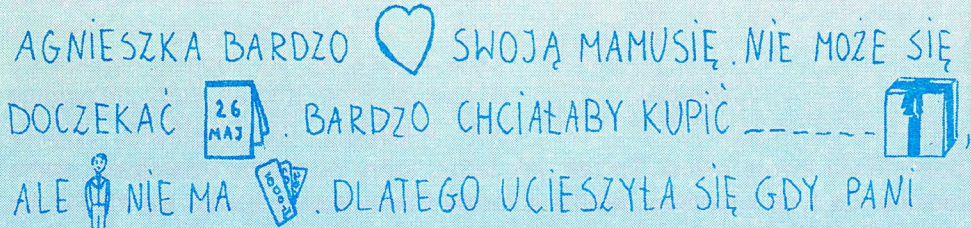 AGNIESZKA BARDZO SWOJĄ MAMUSIĘ. NIE MOŻE SIĘ
DOCZEKAĆ 26 MAJ. BARDZO CHCIAŁABY KUPIĆ ______,
ALE NIE MA. DLATEGO UCIESZYŁA SIĘ GDY PANI